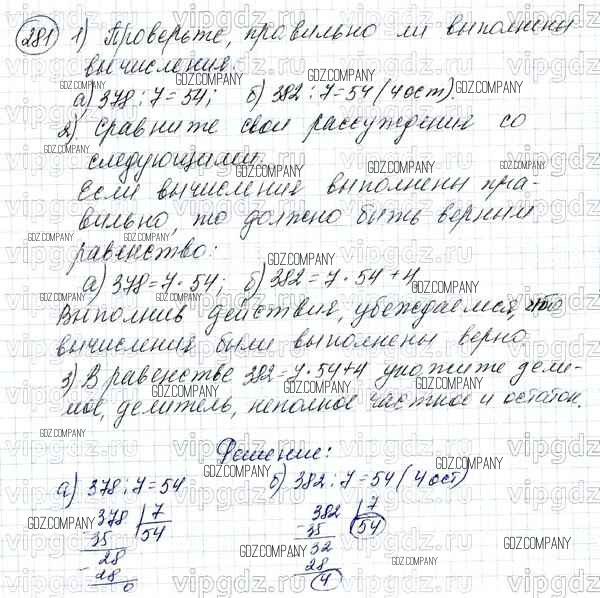 281 1) Проверьте, правильно ли выполнены
вычисления:
а) 378 : 7 = 54; б) 382 : 7 = 54 (4 ост).
2) Сравните свои рассуждения со
следующими.
Если вычисления выполнены пра-
вильно, то должно быть верным
равенство:
а) 378 = 7 · 54; б) 382 = 7 · 54 + 4
Выполнив действия, убеждаемся, что
вычисления были выполнены верно.
3) В равенстве 382 = 7 · 54 + 4 укажите дели-
мое, делитель, неполное частное и остаток.
Решение:
а) 378 : 7 = 54 б) 382 : 7 = 54 (4 ост)
378 7 382 7
- 35 54 - 35 54
28 32
- 28 28
0 4
GDZ.COMPANY
vipgdz.ru